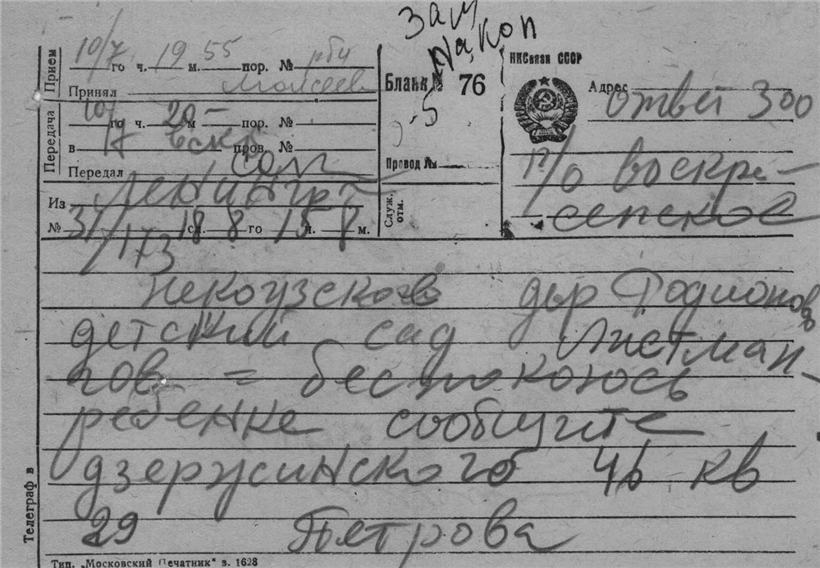 зам
Накоп
Прием
10/7 го ч. 19 м. 55 пор. №
Принял Моисеев
Передача
го ч. 20 м — пор. №
в пров. №
Передал
Из Ленингр
№ 31/173 18 сл. 8 го 15 ч. 8 м.
Бланк № 76
Провод №
Служ. отм.
НКСвязи СССР
Адрес ответ 300
п/о воскре-
сенское
Некоузского дер Родионово
детский сад Листман-
гов = беспокоюсь
ребенке сообщите
дзержинского 46 кв
29 Петрова
Телеграф в
Тип. „Московский Печатник" з. 1628